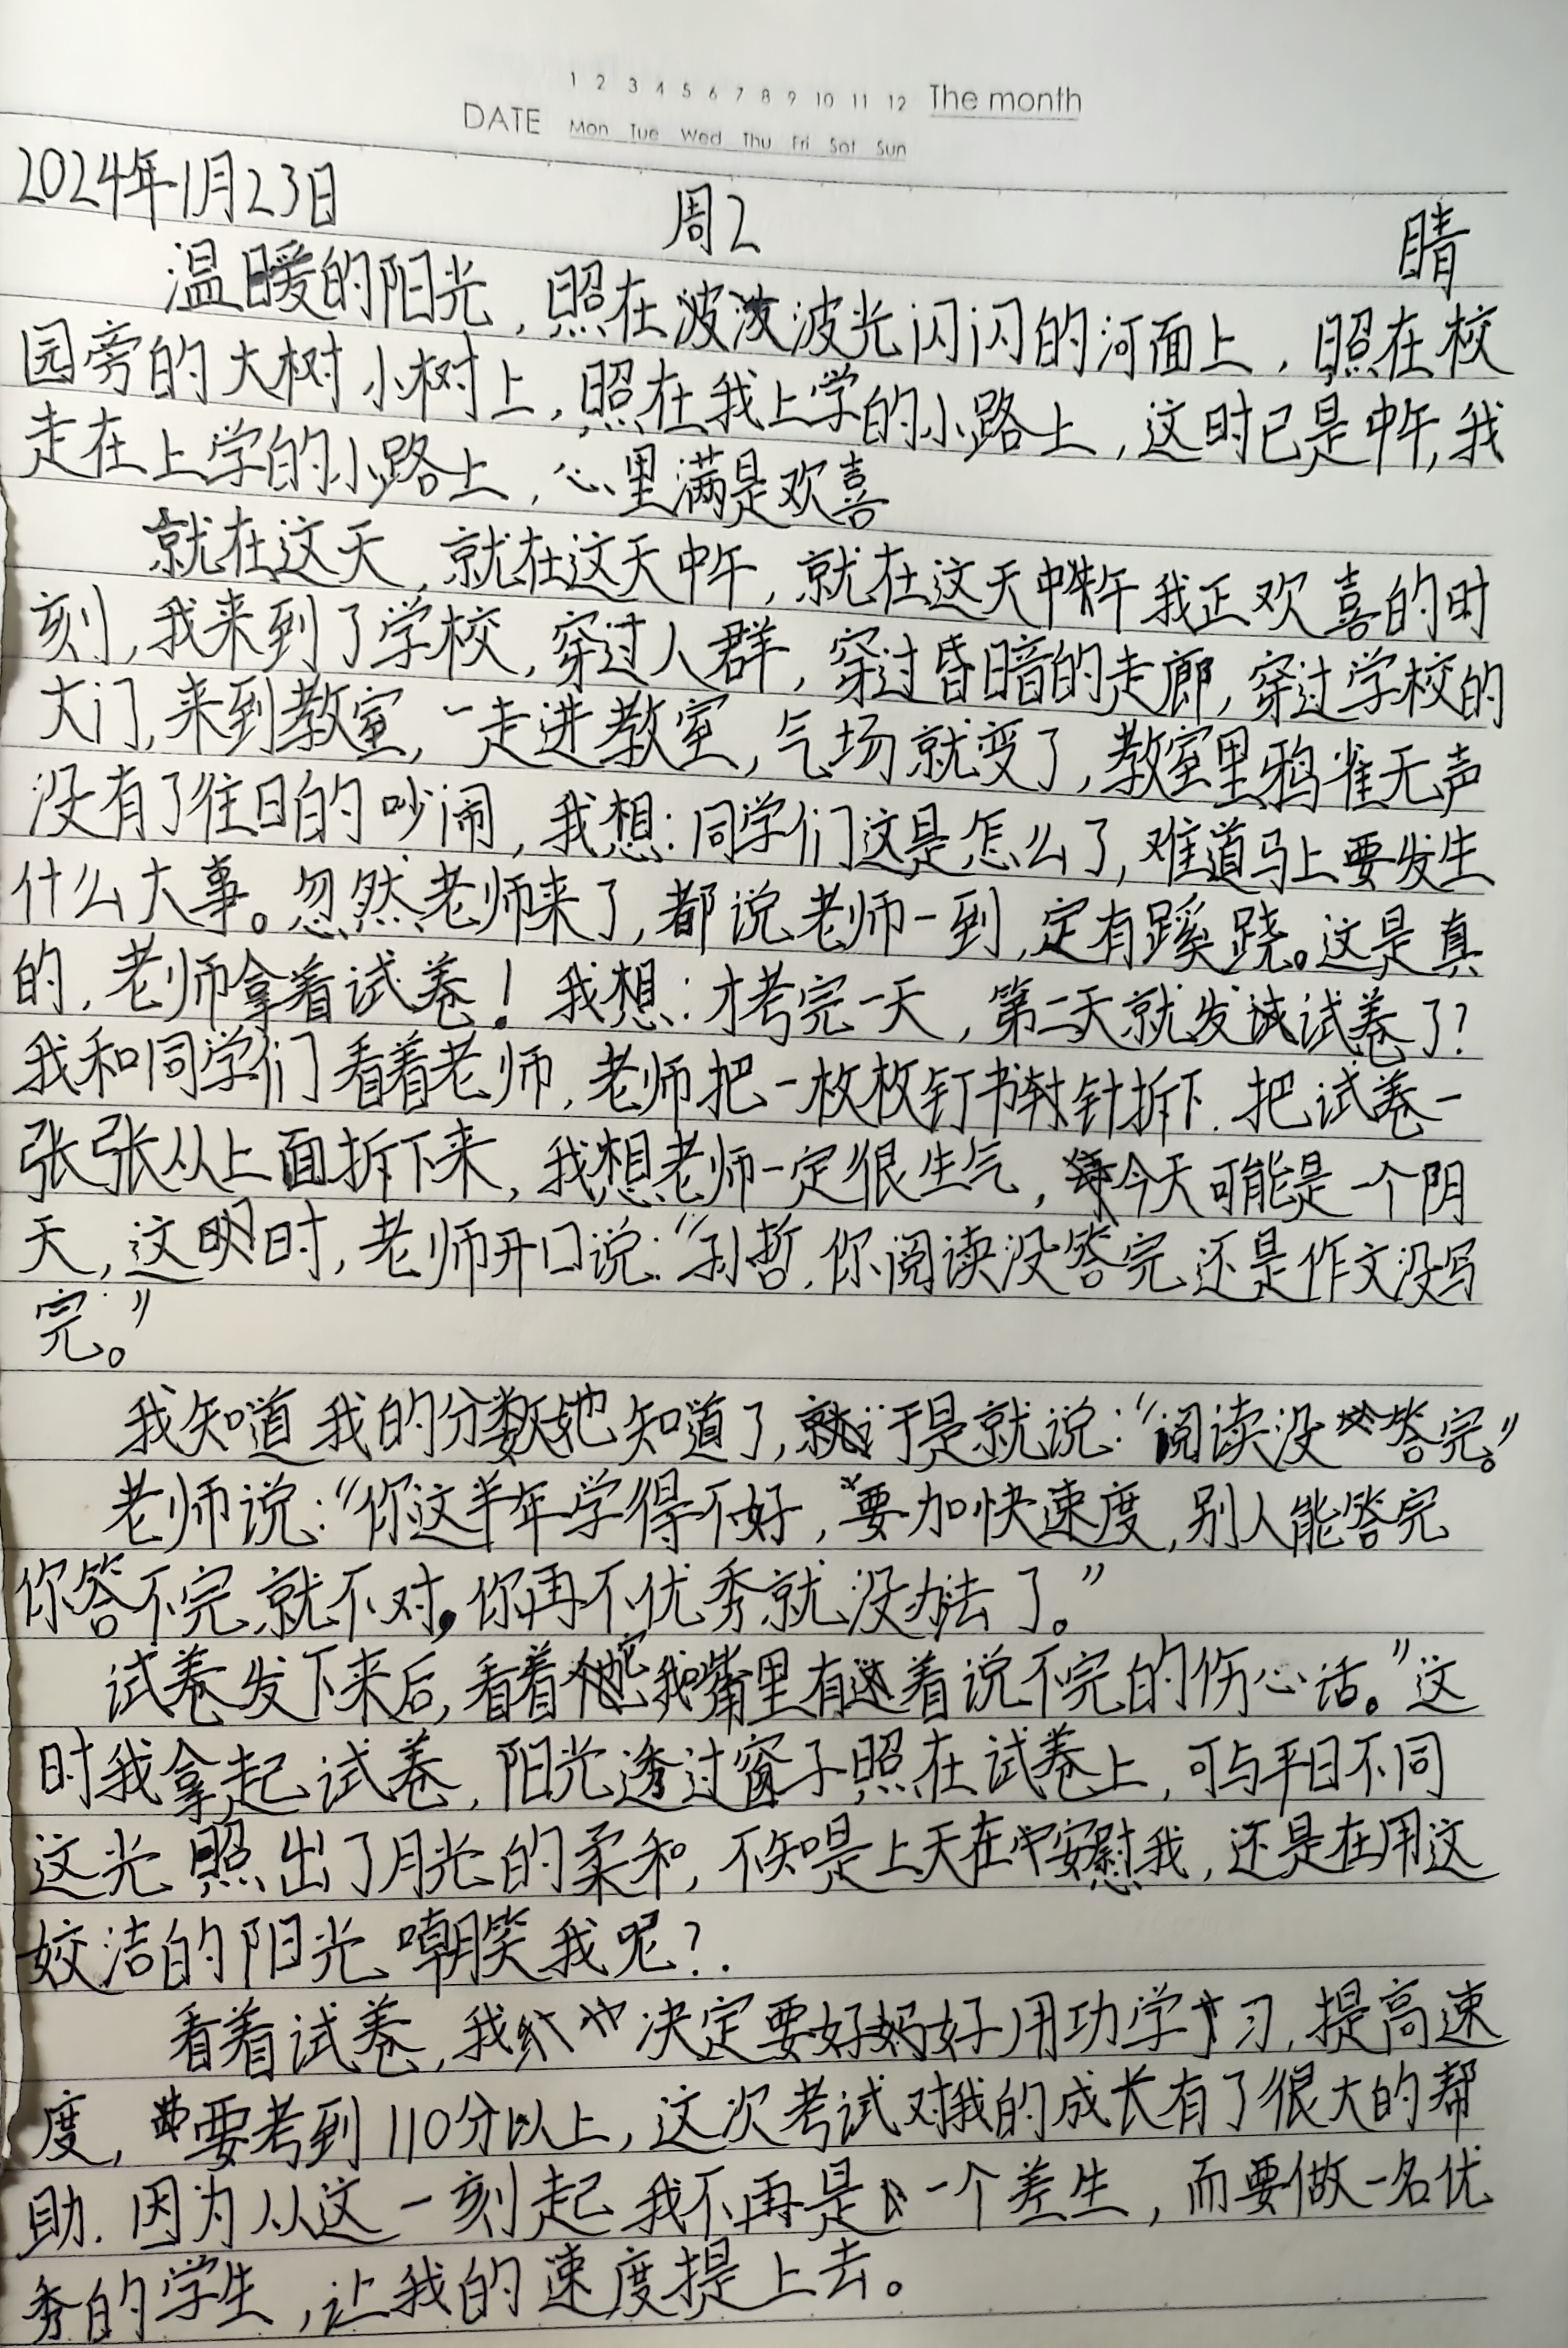 1 2 3 4 5 6 7 8 9 10 11 12 The month
DATE Mon Tue Wed Thu Fri Sat Sun
2024年1月23日 周2 晴
温暖的阳光，照在波光闪闪的河面上，照在校
园旁的大树小树上，照在我上学的小路上，这时已是中午，我
走在上学的小路上，心里满是欢喜
就在这天，就在这天中午，就在这天中午我正欢喜的时
刻，我来到了学校，穿过人群，穿过昏暗的走廊，穿过学校的
大门，来到教室，一走进教室，气场就变了，教室里鸦雀无声
没有了往日的吵闹，我想：同学们这是怎么了，难道马上要发生
什么大事。忽然老师来了，都说老师一到，定有蹊跷。这是真
的，老师拿着试卷！我想：才考完一天，第二天就发试卷了？
我和同学们看着老师，老师把一枚枚钉书针拆下，把试卷一
张张从上面拆下来，我想老师一定很生气，今天可能是一个阴
天，这时，老师开口说：“孙哲，你阅读没答完还是作文没写
完。”
我知道我的分数她知道了，于是就说：“阅读没答完。”
老师说：“你这半年学得不好，要加快速度，别人能答完
你答不完，就不对，你再不优秀就没办法了。”
试卷发下来后，看着它我嘴里有着说不完的伤心话。”这
时我拿起试卷，阳光透过窗子照在试卷上，可与平日不同
这光照出了月光的柔和，不知是上天在安慰我，还是在用这
姣洁的阳光嘲笑我呢？.
看着试卷，我决定要好好用功学习，提高速
度，要考到110分以上，这次考试对我的成长有了很大的帮
助.因为从这一刻起我不再是一个差生，而要做一名优
秀的学生，让我的速度提上去。